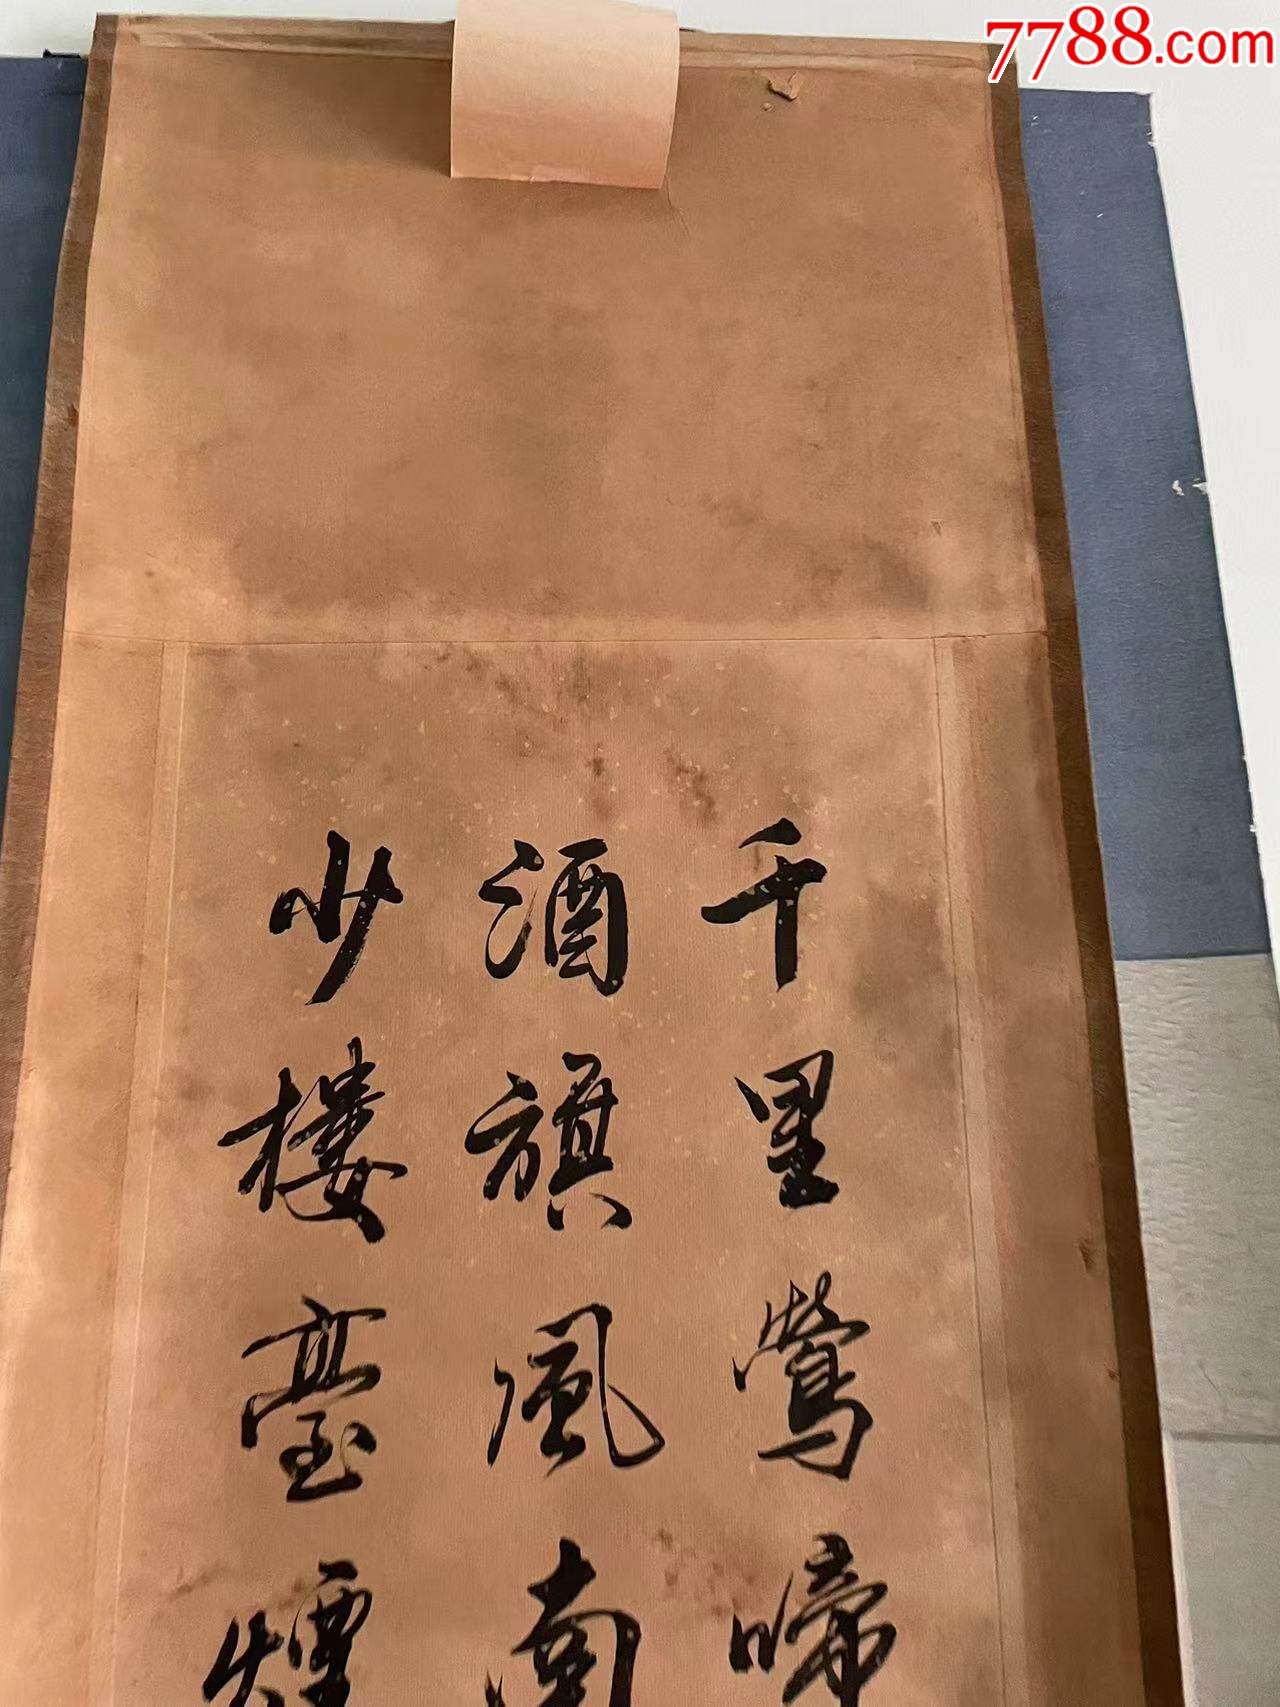 7788.com
千里鶯啼
酒旗風南
少樓臺煙